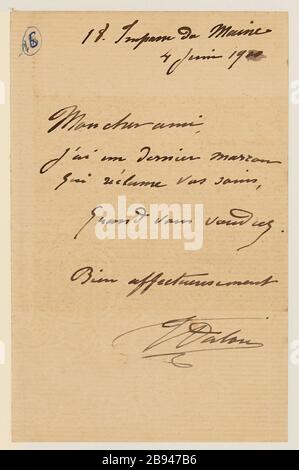 18. Impasse du Maine
4 Juin 19
Mon cher ami,
J'ai un dernier
qui réclame vos soins,
Quand vous voudrez.
Bien affectueusement
Dalou
alamy
Image ID: 2B947B6
www.alamy.com